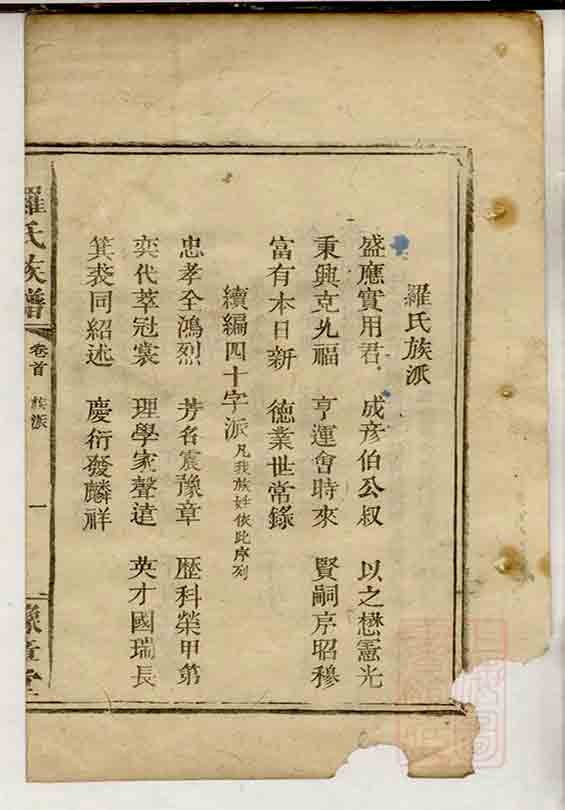 羅氏族派
盛應實用君 成彦伯公叔 以之懋憲光
秉興克允福 亨運會時來 賢嗣序昭穆
富有本日新 德業世常錄
續編四十字派 凡我族姓依此序列
忠孝全鴻烈 芳名震豫章 歷科榮甲第
奕代萃冠裳 理學家聲遠 英才國瑞長
箕裘同紹述 慶衍發麟祥
羅氏族譜 卷首 族派 一 豫章堂